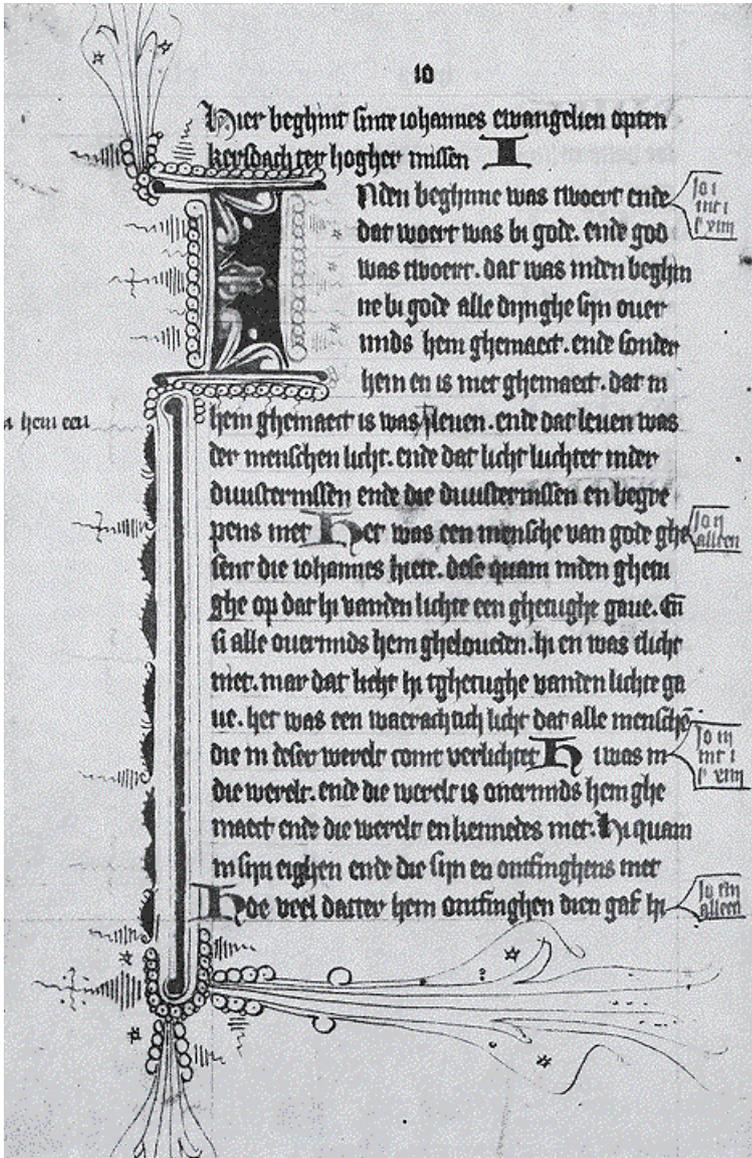 io
Hier beghint sinte iohannes ewangelien opten
kersdach ter hogher missen I
Nden beghinne was twoert ende
dat woert was bi gode. ende god
was twoert. dat was inden beghin
ne bi gode alle dijnghe sijn ouer
mids hem ghemaect. ende sonder
hem en is niet ghemaect. dat in
hem ghemaect is was leuen. ende dat leuen was
der menschen licht. ende dat licht luchtet inder
duusternissen ende die duusternissen en begre
pens niet Het was een mensche van gode ghe
sent die iohannes hiete. dese quam inden ghetu
ghe op dat hi vanden lichte een ghetughe gaue. En̄
si alle ouermids hem gheloueden. hi en was tlicht
niet. mar dat licht hi tghetughe vanden lichte ga
ue. het was een waerachtich licht dat alle menschē
die in deser werelt comt verlichtet Hi was in
die werelt. ende die werelt is ouermids hem ghe
maect ende die werelt en kennedes niet. Hi quam
in sijn eighen ende die sijn en ontfinghens niet
Hoe veel datter hem ontfinghen dien gaf hi
hem een
io i
mt i
l' xiiij
io ij
alleen
io iij
mt i
l' xiiij
alleen